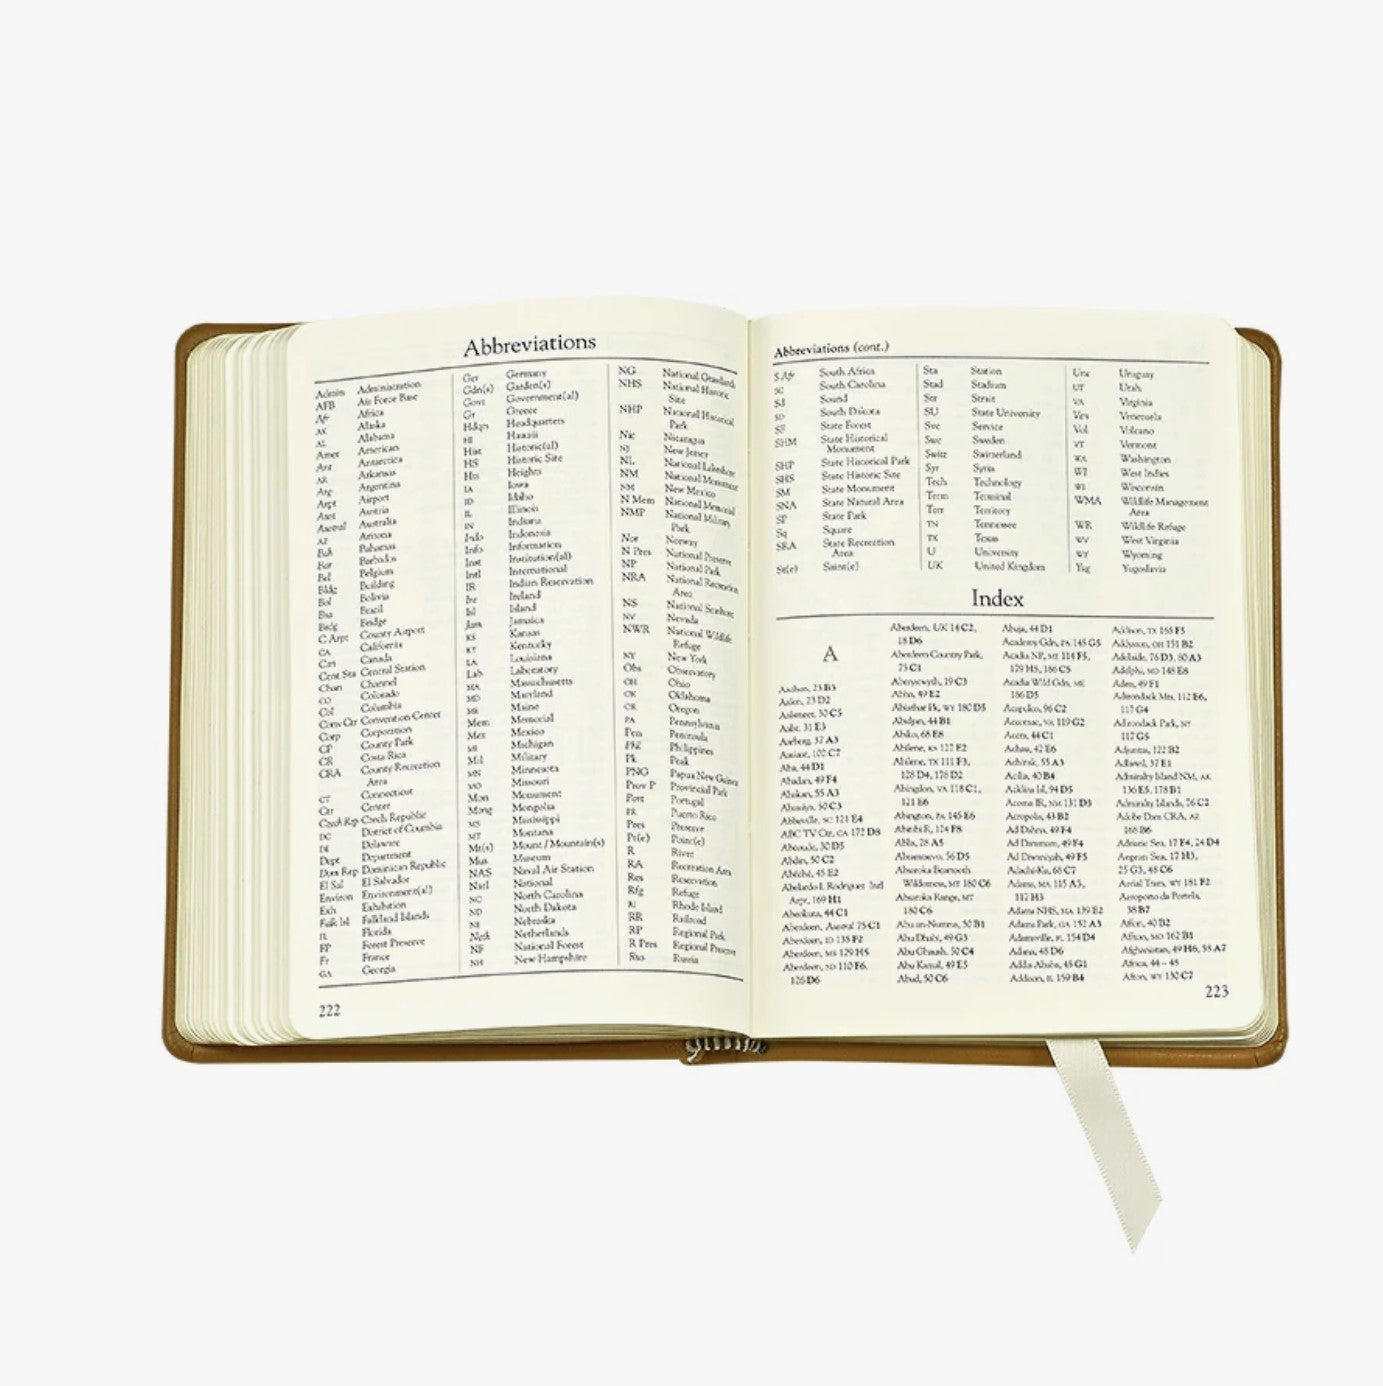 Abbreviations
Admin Administration
AFB Air Force Base
Afr Africa
AK Alaska
AL Alabama
Amer American
Ant Antarctica
AR Arkansas
Arg Argentina
Arpt Airport
Aust Austria
Austral Australia
AZ Arizona
Bah Bahamas
Bar Barbados
Bel Belgium
Bldg Building
Bol Bolivia
Bra Brazil
Brdg Bridge
C Arpt County Airport
CA California
Can Canada
Cent Sta Central Station
Chan Channel
CO Colorado
Col Columbia
Conv Ctr Convention Center
Corp Corporation
CP County Park
CR Costa Rica
CRA County Recreation
Area
CT Connecticut
Ctr Center
Czech Rep Czech Republic
DC District of Columbia
DE Delaware
Dept Department
Dom Rep Dominican Republic
El Sal El Salvador
Environ Environment(al)
Exh Exhibition
Falk Isl Falkland Islands
FL Florida
FP Forest Preserve
Fr France
GA Georgia
Ger Germany
Gdn(s) Garden(s)
Govt Government(al)
Gr Greece
Hdqrs Headquarters
HI Hawaii
Hist Historic(al)
HS Historic Site
Hts Heights
IA Iowa
ID Idaho
IL Illinois
IN Indiana
Indo Indonesia
Info Information
Inst Institution(al)
Intl International
IR Indian Reservation
Ire Ireland
Isl Island
Jam Jamaica
KS Kansas
KY Kentucky
LA Louisiana
Lab Laboratory
MA Massachusetts
MD Maryland
ME Maine
Mem Memorial
Mex Mexico
MI Michigan
Mil Military
MN Minnesota
MO Missouri
Mon Monument
Mong Mongolia
MS Mississippi
MT Montana
Mt(s) Mount/Mountain(s)
Mus Museum
NAS Naval Air Station
Natl National
NC North Carolina
ND North Dakota
NE Nebraska
Neth Netherlands
NF National Forest
NH New Hampshire
NG National Grasslands
NHS National Historic
Site
NHP National Historical
Park
Nic Nicaragua
NJ New Jersey
NL National Lakeshore
NM National Monument
NM New Mexico
N Mem National Memorial
NMP National Military
Park
Nor Norway
N Pres National Preserve
NP National Park
NRA National Recreation
Area
NS National Seashore
NV Nevada
NWR National Wildlife
Refuge
NY New York
Obs Observatory
OH Ohio
OK Oklahoma
OR Oregon
PA Pennsylvania
Pen Peninsula
Phil Philippines
Pk Peak
PNG Papua New Guinea
Prov P Provincial Park
Port Portugal
PR Puerto Rico
Pres Preserve
Pt(e) Point(e)
R River
RA Recreation Area
Res Reservation
Rfg Refuge
RI Rhode Island
RR Railroad
RP Regional Park
R Pres Regional Preserve
Rus Russia
222
Abbreviations (cont.)
S Afr South Africa
SC South Carolina
Sd Sound
SD South Dakota
SF State Forest
SHM State Historical
Monument
SHP State Historical Park
SHS State Historic Site
SM State Monument
SNA State Natural Area
SP State Park
Sq Square
SRA State Recreation
Area
St(e) Saint(e)
Sta Station
Stad Stadium
Str Strait
SU State University
Svc Service
Swe Sweden
Switz Switzerland
Syr Syria
Tech Technology
Term Terminal
Terr Territory
TN Tennessee
TX Texas
U University
UK United Kingdom
Uru Uruguay
UT Utah
VA Virginia
Ven Venezuela
Vol Volcano
VT Vermont
WA Washington
WI West Indies
WI Wisconsin
WMA Wildlife Management
Area
WR Wildlife Refuge
WV West Virginia
WY Wyoming
Yug Yugoslavia
Index
A
Aachen, 23 B3
Aalen, 23 D2
Aalsmeer, 30 C5
Aalst, 31 E3
Aarberg, 37 A3
Aba, 44 D1
Abadan, 49 F4
Abakan, 55 A3
Abbeville, SC 121 E4
ABC TV Ctr, CA 172 D8
Abcoude, 30 D5
Abdin, 50 C2
Abéché, 45 E2
Abelardo L Rodriguez Intl
Arpt, 169 H1
Abeokuta, 44 C1
Aberdeen, Austral 75 C1
Aberdeen, ID 135 F2
Aberdeen, MS 129 H5
Aberdeen, SD 110 F6,
126 D6
Aberdeen, UK 14 C2,
18 D6
Aberdeen Country Park,
75 C1
Aberystwyth, 19 C3
Abha, 49 E2
Abiathar Pk, WY 180 D5
Abidjan, 44 B1
Abiko, 68 E8
Abilene, KS 127 E2
Abilene, TX 111 F3,
128 D4, 178 D2
Abingdon, VA 118 C1,
121 E6
Abington, PA 145 E6
Abitibi R, 124 F8
Absaroka Beartooth
Wilderness, MT 180 C6
Absaroka Range, MT
180 C6
Abu an-Numrus, 50 B1
Abu Dhabi, 49 G3
Abu Ghush, 50 C4
Abu Kamal, 49 E5
Abud, 50 C6
Abuja, 44 D1
Academy Gdn, PA 145 G5
Acadia NP, ME 114 F5,
179 H5, 186 C5
Acadia Wild Gdn, ME
186 D5
Acapulco, 96 C2
Accomac, VA 119 G2
Accra, 44 C1
Achinsk, 55 A3
Acklins Isl, 94 D5
Acoma IR, NM 131 D3
Acropolis, 43 B2
Ad Dahna, 49 F4
Ad Dammam, 49 F4
Ad Diwaniyah, 49 F5
Adachi-Ku, 68 C7
Adams, MA 115 A3,
117 H3
Adams NHS, MA 139 E2
Adams Park, GA 152 A3
Adamsville, FL 154 D4
Adana, 48 D6
Addis Ababa, 45 G1
Addison, IL 159 B4
Addison, TX 165 F5
Addyston, OH 151 B2
Adelaide, 76 D3, 80 A3
Adelphi, MD 148 E8
Aden, 49 F1
Adirondack Mts, 112 E6,
117 G4
Adirondack Park, NY
117 G5
Adjuntas, 122 B2
Adliswil, 37 E1
Admiralty Island NM, AK
136 E5, 178 B1
Admiralty Islands, 76 C2
Adobe Dam CRA, AZ
168 B6
Adriatic Sea, 17 F4, 24 D4
Aegean Sea, 17 H3,
25 G3, 48 C6
Aerial Tram, WY 181 F2
Aeroporto da Portela,
38 B7
Affton, MO 162 B1
Afghanistan, 49 H6, 55 A7
Africa, 44 – 45
Afton, WY 130 C7
223